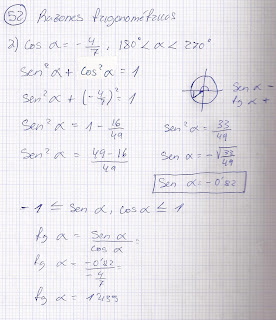 52 Razones trigonométricas
2) cos α = -4/7, 180° < α < 270°
sen² α + cos² α = 1
sen α -
tg α +
sen² α + (-4/7)² = 1
sen² α = 1 - 16/49
sen² α = 33/49
sen² α = 49-16/49
sen α = -√33/49
sen α = -0'82
-1 ≤ sen α, cos α ≤ 1
tg α = sen α/cos α
tg α = -0'82/-4/7 =
tg α = 1'435